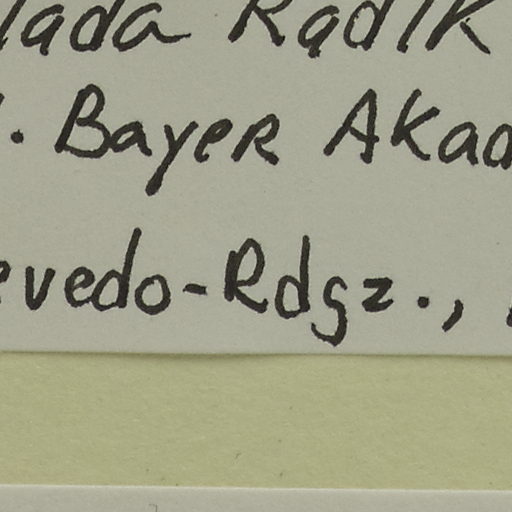 lada Radlk
. Bayer Akad
evedo-Rdgz.,